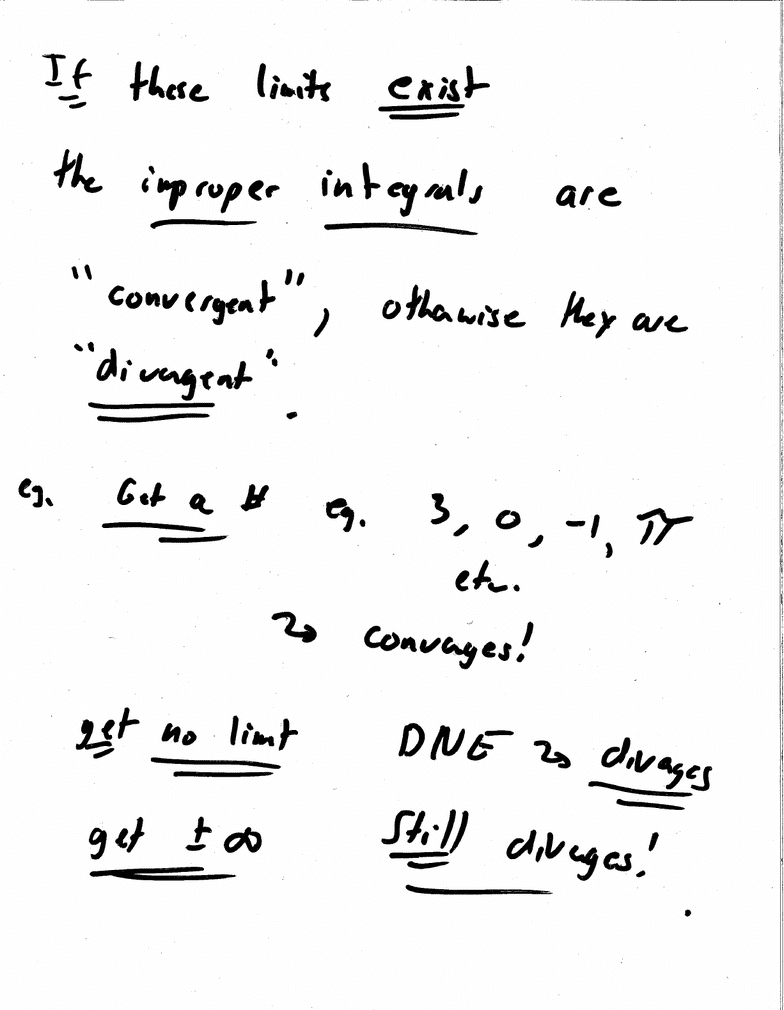 If these limits exist
the improper integrals are
"convergent", otherwise they are
"divergent".
eg. Get a # eg. 3, 0, -1, π
etc.
↝ converges!
get no limit DNE ↝ diverges
get ± ∞ Still diverges!